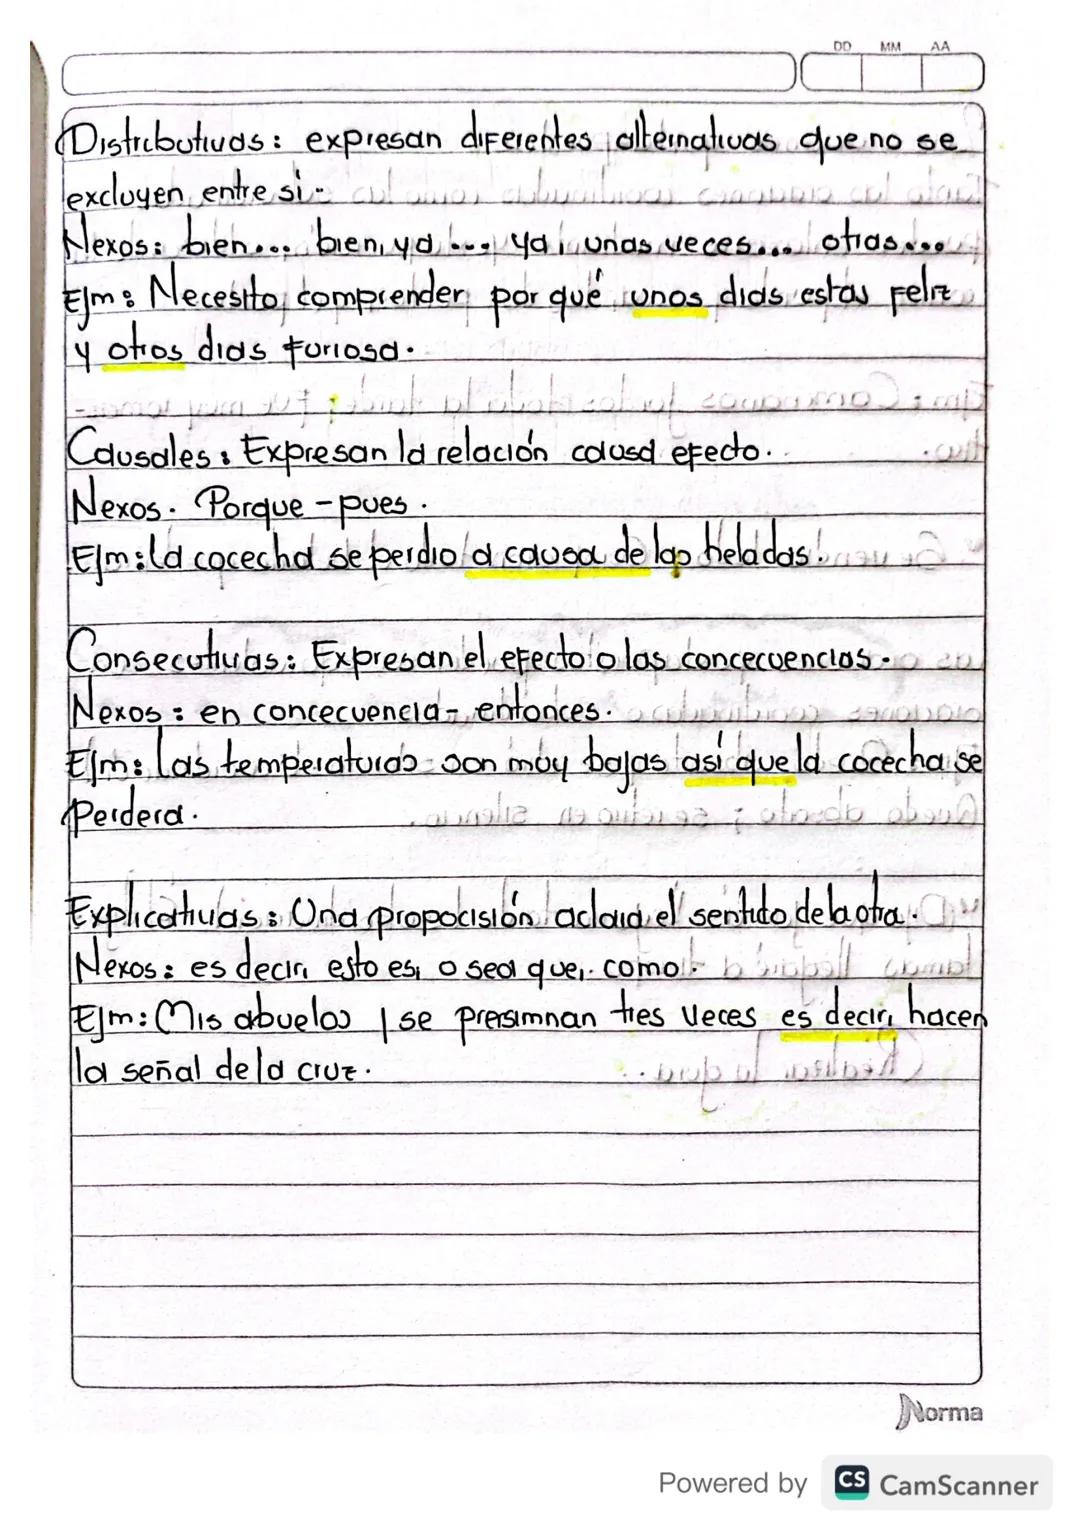 DD MM AA
Distributivas: expresan diferentes alternativas que no se
excluyen entre si.
Nexos: bien... bien, ya ... ya, unas veces... otras...
Ejm: Necesito comprender por qué unos dias estas feliz
y otros dias furiosa.
Causales: Expresan la relación causa efecto.
Nexos. Porque - pues.
Ejm: la cocecha se perdio a causa de las heladas.
Consecutivas: Expresan el efecto o las concecuencias.
Nexos: en concecuencia - entonces.
Ejm: las temperaturas son muy bajas así que la cocecha se
Perdera.
Explicativas: Una propocisión aclara el sentido de la otra.
Nexos: es decir, esto es, o sea que, como.
Ejm: Mis abuelos se presimnan tres veces es decir, hacen
la señal de la cruz.
Norma
Powered by CS CamScanner